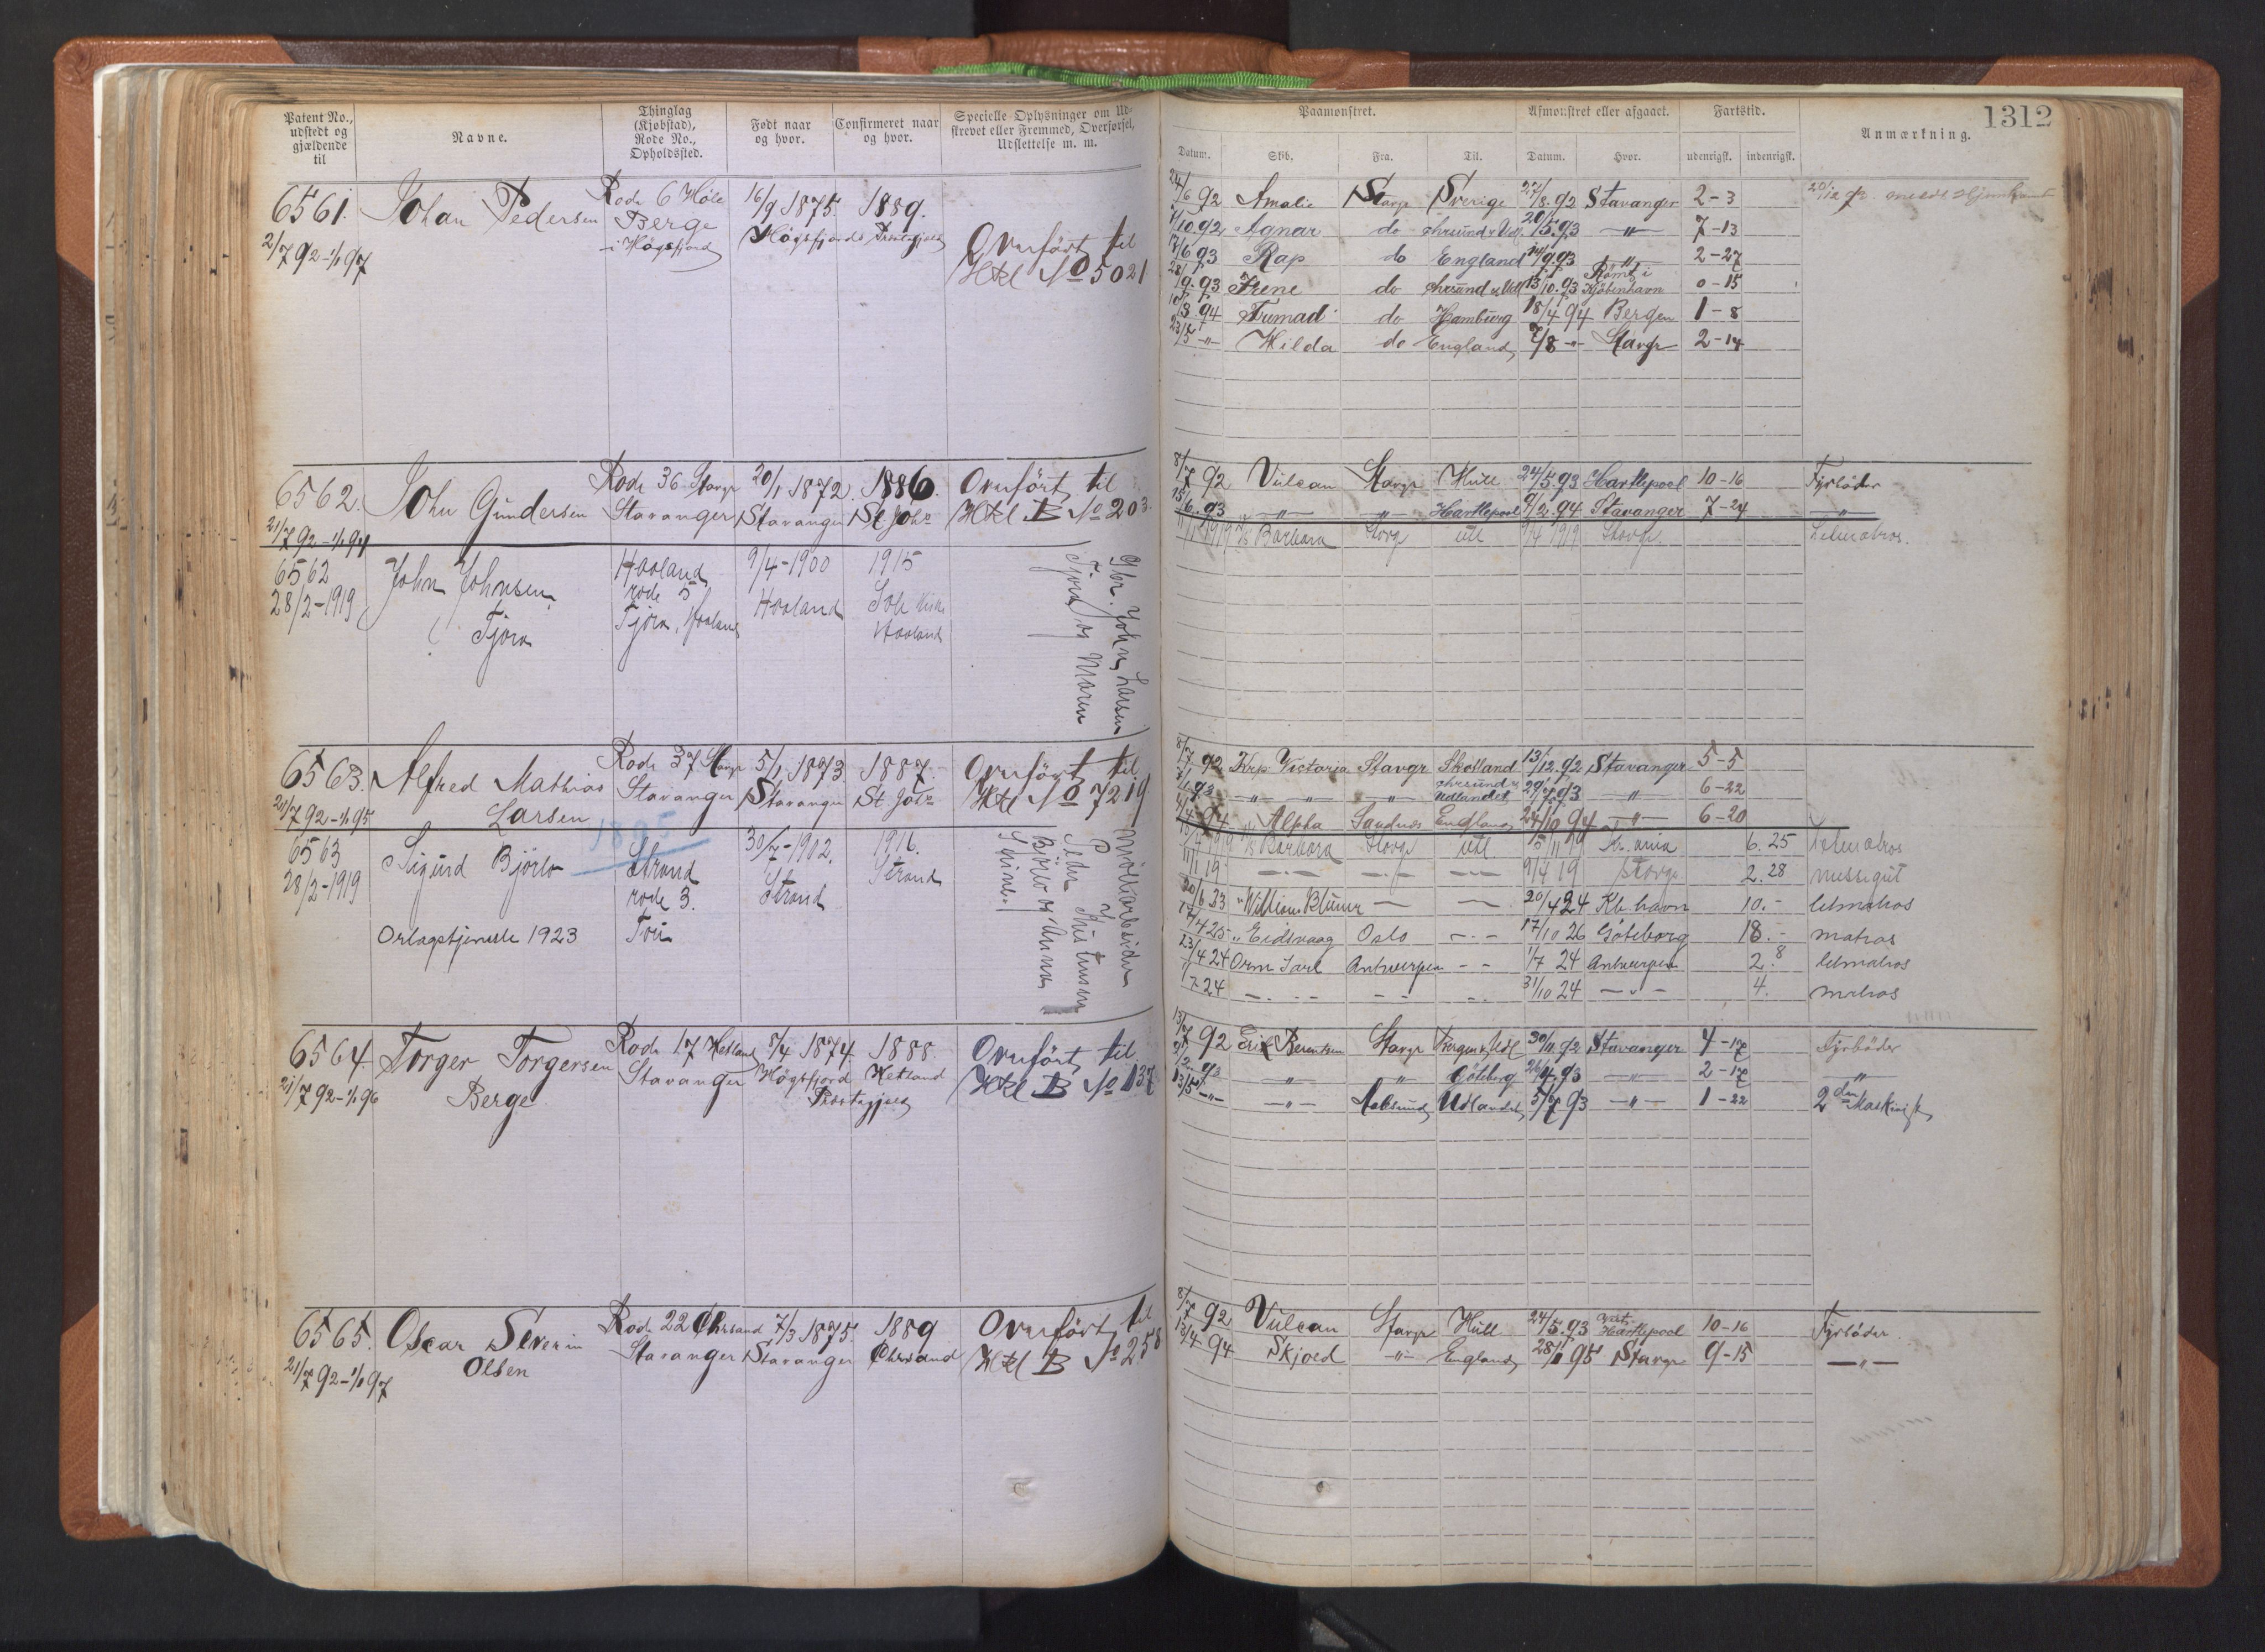 Patent No., udstedt og gjældende til
Navne.
Thinglag (Kjøbstad), Rode No., Opholdssted.
Født naar og hvor.
Confirmeret naar og hvor.
Specielle Oplysninger om Udskrevet eller Fremmed, Overførsel, Udslettelse m. m.
Paamønstret.
Afmønstret eller afgaaet.
Fartstid.
Anmærkning.
1312
Datum. Skib. Fra. Til. Datum. Hvor. udenrigsk. indenrigsk.
6561. Johan Pedersen Rode 6 Høle 16/9 1875. 1889.
2/7 92-1/1 97 Berge i Høgsfjord Høgsfjords Præstegjeld
Overført til Htel No 5021
24/6 92 Amalie Stavgr Sverige 27/8.92 Stavanger 2-3
11/10.92 Agnar do Chrsund & Udl 20/5.93 -"- 7-13
17/6 93 Rap do England 14/9.93 -"- 2-27
28/9.93 Irene do Chrsund & Udl 13/10.93 Rømt i Kjøbenhavn 0-15
10/3.94 Frumad do Hamburg 18/4 94 Bergen 1-8
23/5 -"- Hilda do England 7/8 -"- Stavgr 2-14
6562. John Gundersen Rode 36 Stavgr 20/1 1872. 1886. Overført til
21/7 92-1/1 94 Stavanger Stavanger St. Johs Htel B No 203
8/7 92 Vulcan Stavgr Hull 24/5 93 Hartlepool 10-16 Fyrbøder
15/6.93 -"- -"- Hartlepool 9/2.94 Stavanger 7-24 -"-
6562 John Johnsen Haaland 9/4-1900 1915
28/2-1919 Tjora rode 5 Haaland Sole Kirke
Tjora, Haaland Haaland
Gbr. John Larsen
Tjora og Maren
11/1 1919 Barbara Stavgr utl 9/4 1919 Stavgr. Letmatros.
6563. Alfred Mathias Rode 37 Stavgr 5/1 1873 1887. Overført til
21/7 92-1/1 95 Larsen Stavanger Stavanger St. Johs Htel No 7219
1895
8/7 92 Krp Victoria Stavgr Skotland 13/12.92 Stavanger 5-5
-"- -"- -"- Chrsund & Udlandet 29/7.93 -"- 6-22
Alpha Sandnes England 24/10 94 -"- 6-20
6563 Sigurd Björlo Strand 30/7-1902. 1916.
28/2-1919 rode 3. Strand Strand
Orlogstjeneste 1923 Tou
Møllearbeider
Peder Kristensen
Björlo og Anna
Serine
Barbara Stavgr utl Kr.ania 6.25 Letmatros
11/1 19 9/4 19 Stavgr 2.28 messegut
20/6 23 William Blumer 20/4 24 Kb.havn 10.- letmatros
17/4 25 Eidsvaag Oslo 17/10 26 Göteborg 18.- matros
23/4 24 Orm Jarl Antwerpen 1/7 24 Antwerpen 2.8 letmatros
1/7 24 31/10 24 4. matros
6564. Torger Torgersen Rode 17 Hetland 8/4 1874. 1888. Overført til
21/7 92-1/1 96 Berge Stavanger Høgsfjord Præstegjeld Hetland Htel B No 137
13/7 92 Erik Berentsen Stavgr Bergen & Udl 30/11.92 Stavanger 4-17 Fyrbøder
2/2.93 -"- -"- Göteborg 26/4.93 -"- 2-17 -"-
13/5 -"- -"- Aalesund Udlandet 5/7 93 -"- 1-22 2den Maskinist
6565. Oscar Severin Rode 22 Chrsand 7/3 1875. 1889 Overført til
21/7 92-1/1 97 Olsen Stavanger Stavanger Chrsand Htel B No 258
8/7 92 Vulcan Stavgr Hull 24/5.93 Vest Hartlepool 10-16 Fyrbøder
13/4 94 Skjold -"- England 28/1 95 Stavgr 9-15 -"-